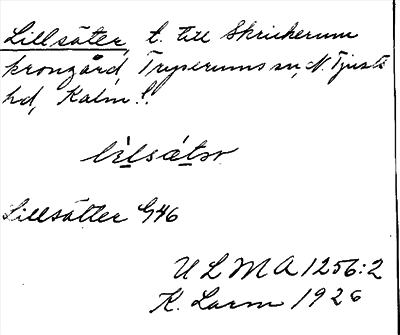 Lillsäter, t. till Skrickerum
krongård, Tryserums sn, N. Tjusts
hd, Kalm. l.
lìlsǽtər
Lillsätter G46
ULMA 1256:2
K. Larm 1926